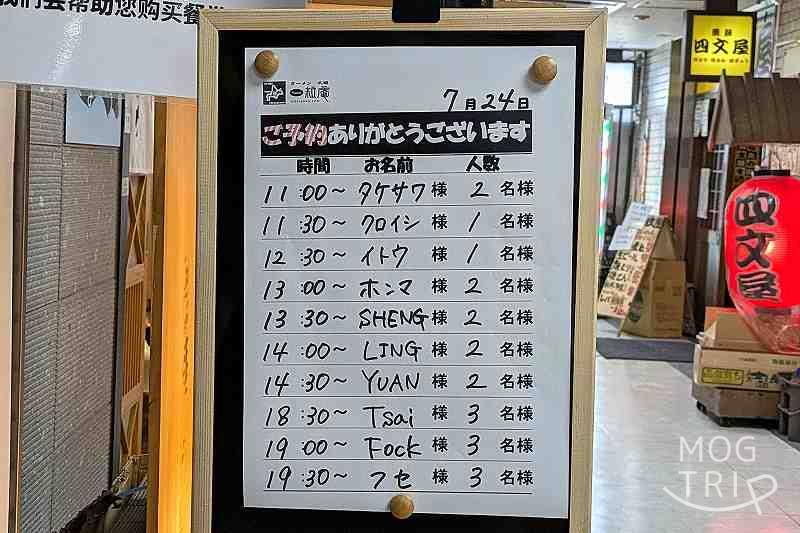 我们会帮助您购买餐
ラーメン 札幌
一粒庵
7月24日
ご予約ありがとうございます
時間 お名前 人数
11:00～ タケサワ様 2名様
11:30～ クロイシ様 1名様
12:30～ イトウ様 1名様
13:00～ ホンマ様 2名様
13:30～ SHENG様 2名様
14:00～ LING様 2名様
14:30～ YUAN様 2名様
18:30～ Tsai様 3名様
19:00～ Fock様 3名様
19:30～ フセ様 3名様
四文屋
四文屋
MOG
TRIP